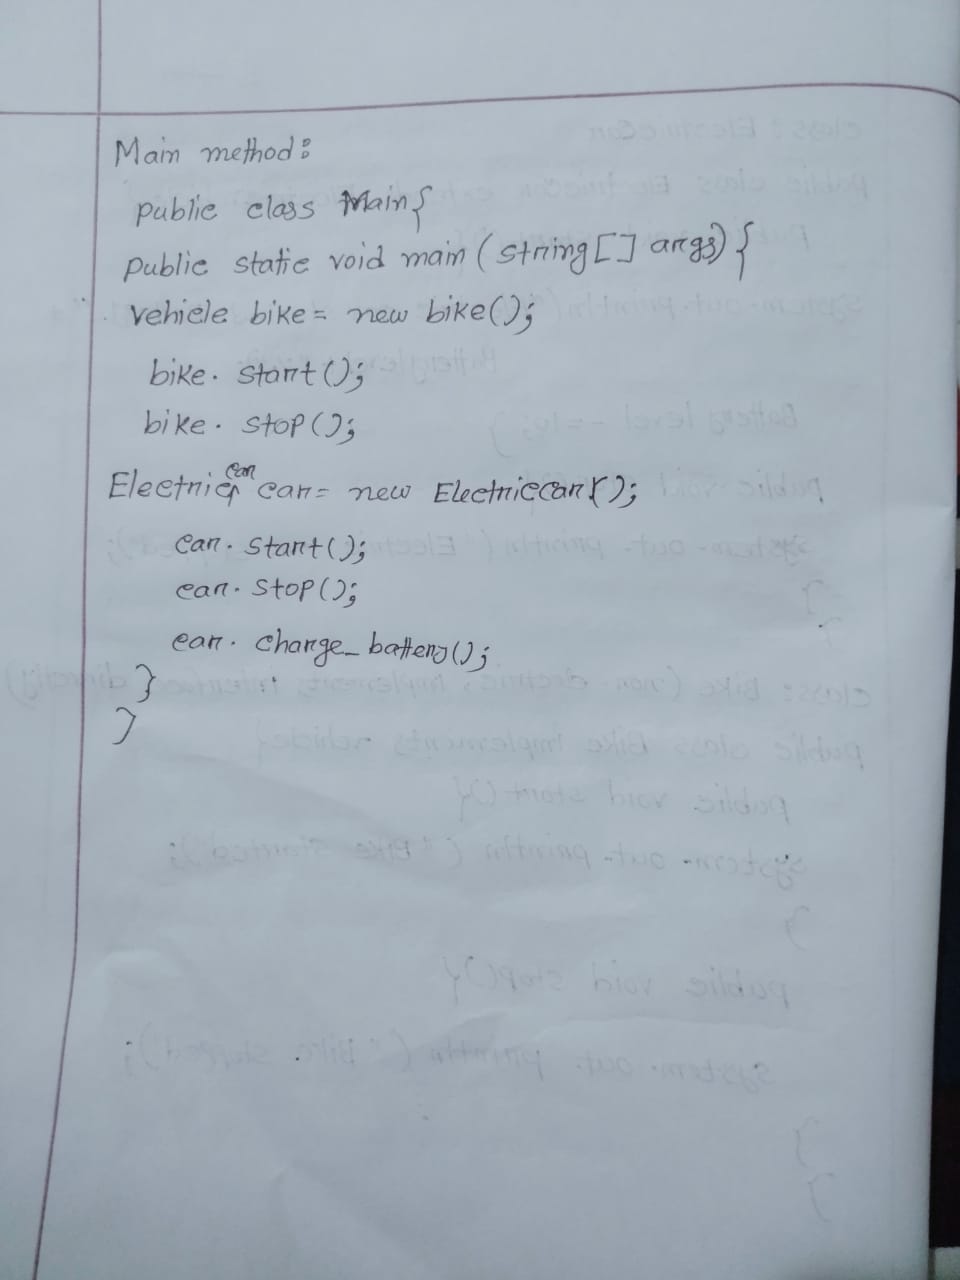 Main method:
public class Main{
public static void main (string [] args) {
vehicle bike = new bike();
bike. start();
bike. stop();
Electriccar car = new Electriccar();
car. start();
car. stop();
car. charge_battery();
}
}